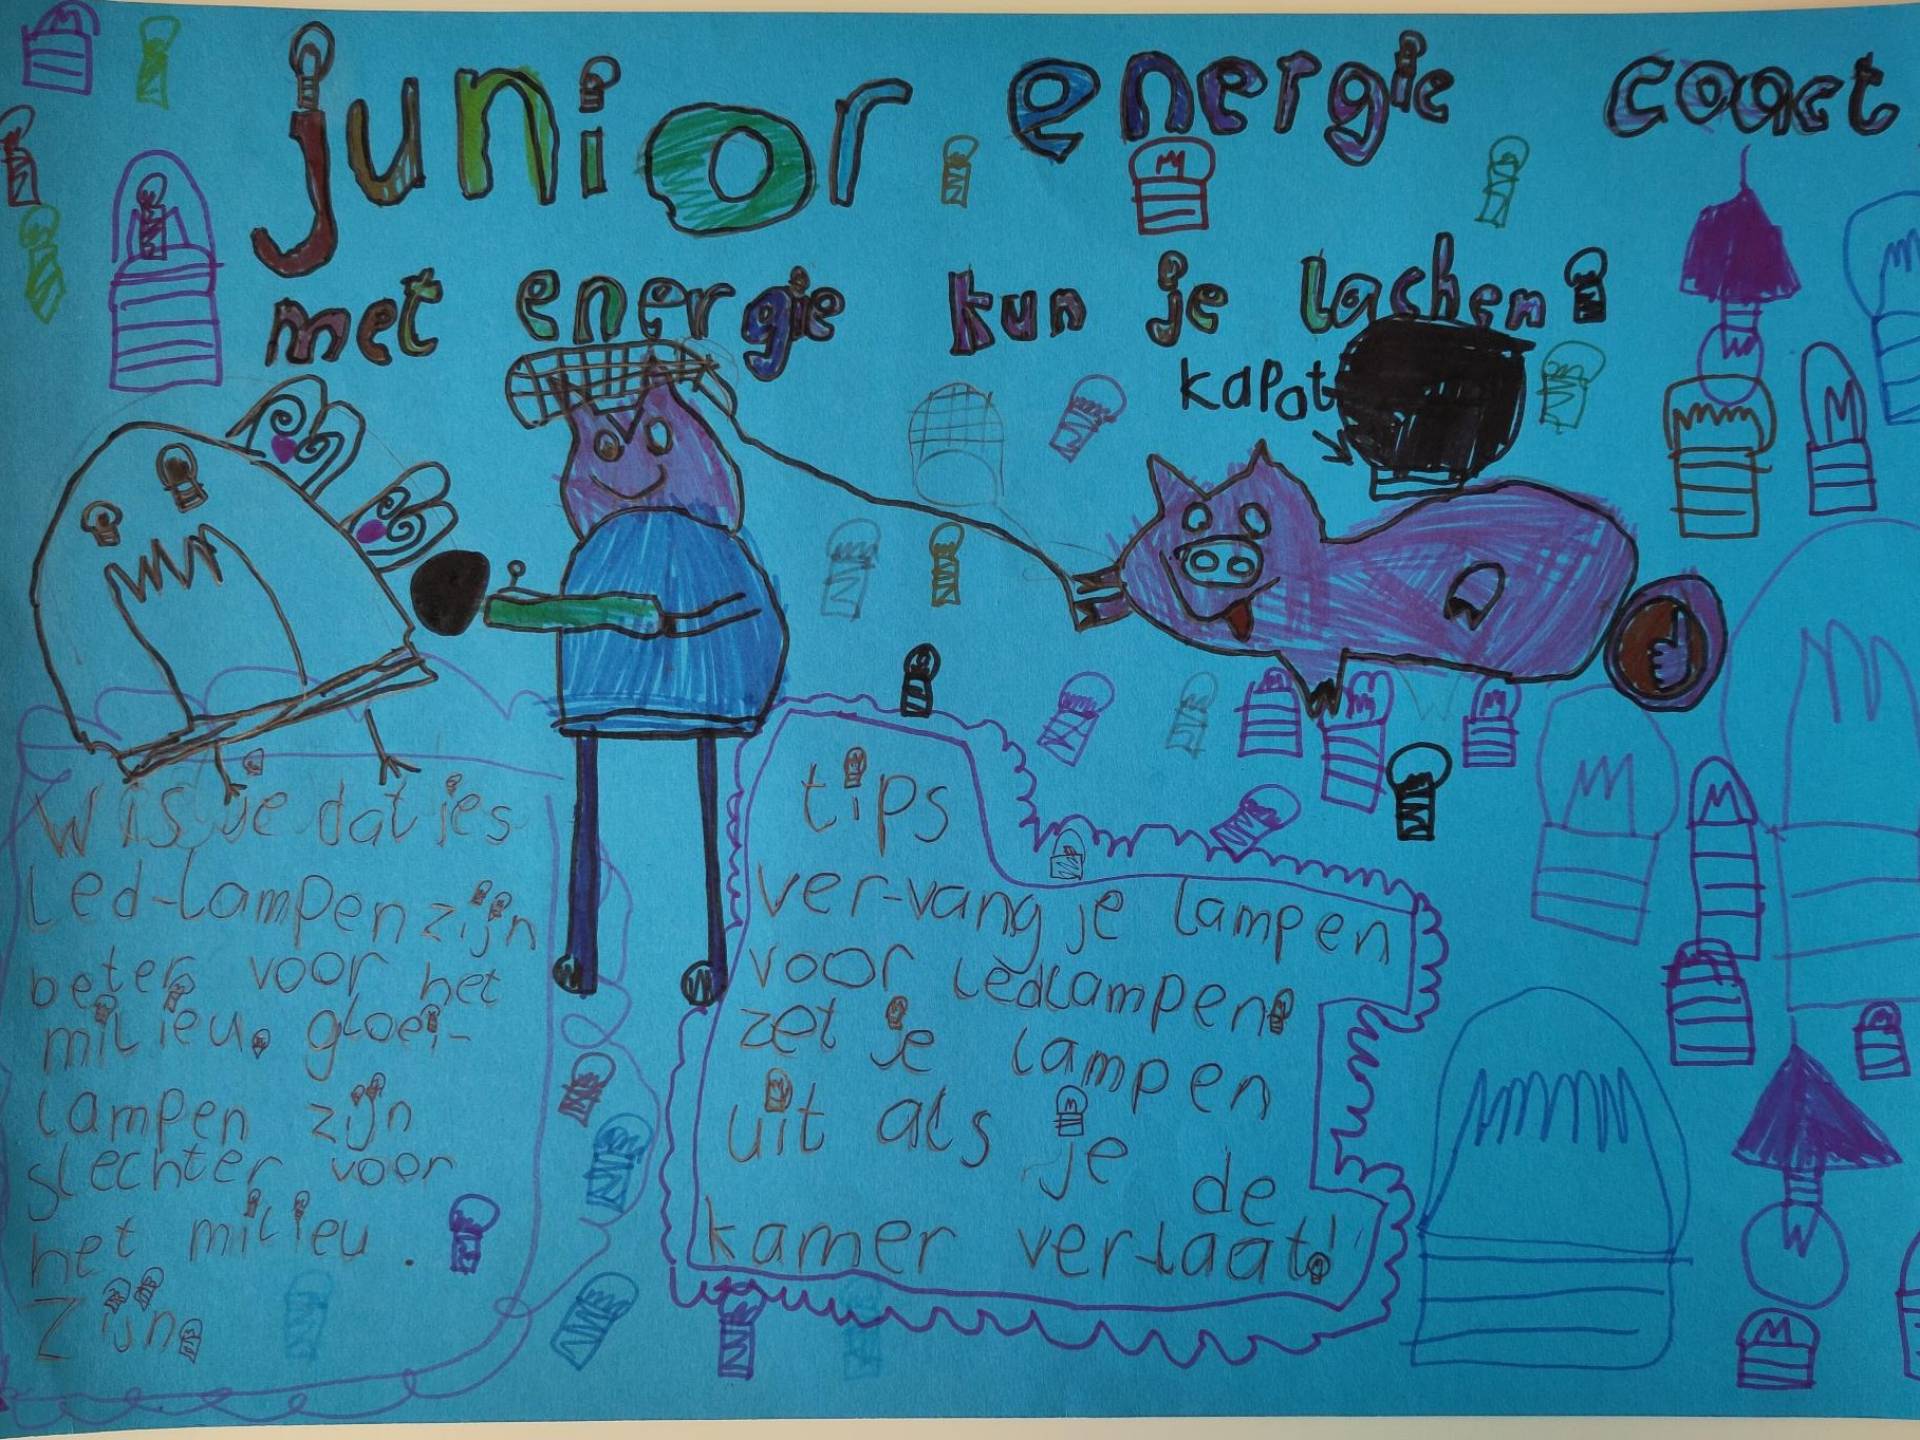 junior energie coact
met energie kun je lachen!
kapot
Wis je dat ies
Led-lampen zijn
beter voor het
milieu. gloei-
lampen zijn
slechter voor
het milieu.
Zijn.
tips
ver-vang je lampen
voor ledlampen!
zet je lampen
uit als je de
kamer verlaat!